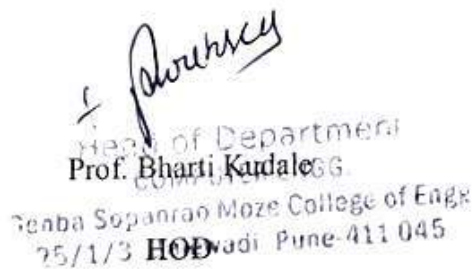 Head of Department
Prof. Bharti Kudale
COMPUTER ENGG.
Genba Sopanrao Moze College of Engg
25/1/3 Pune-411 045
HOD